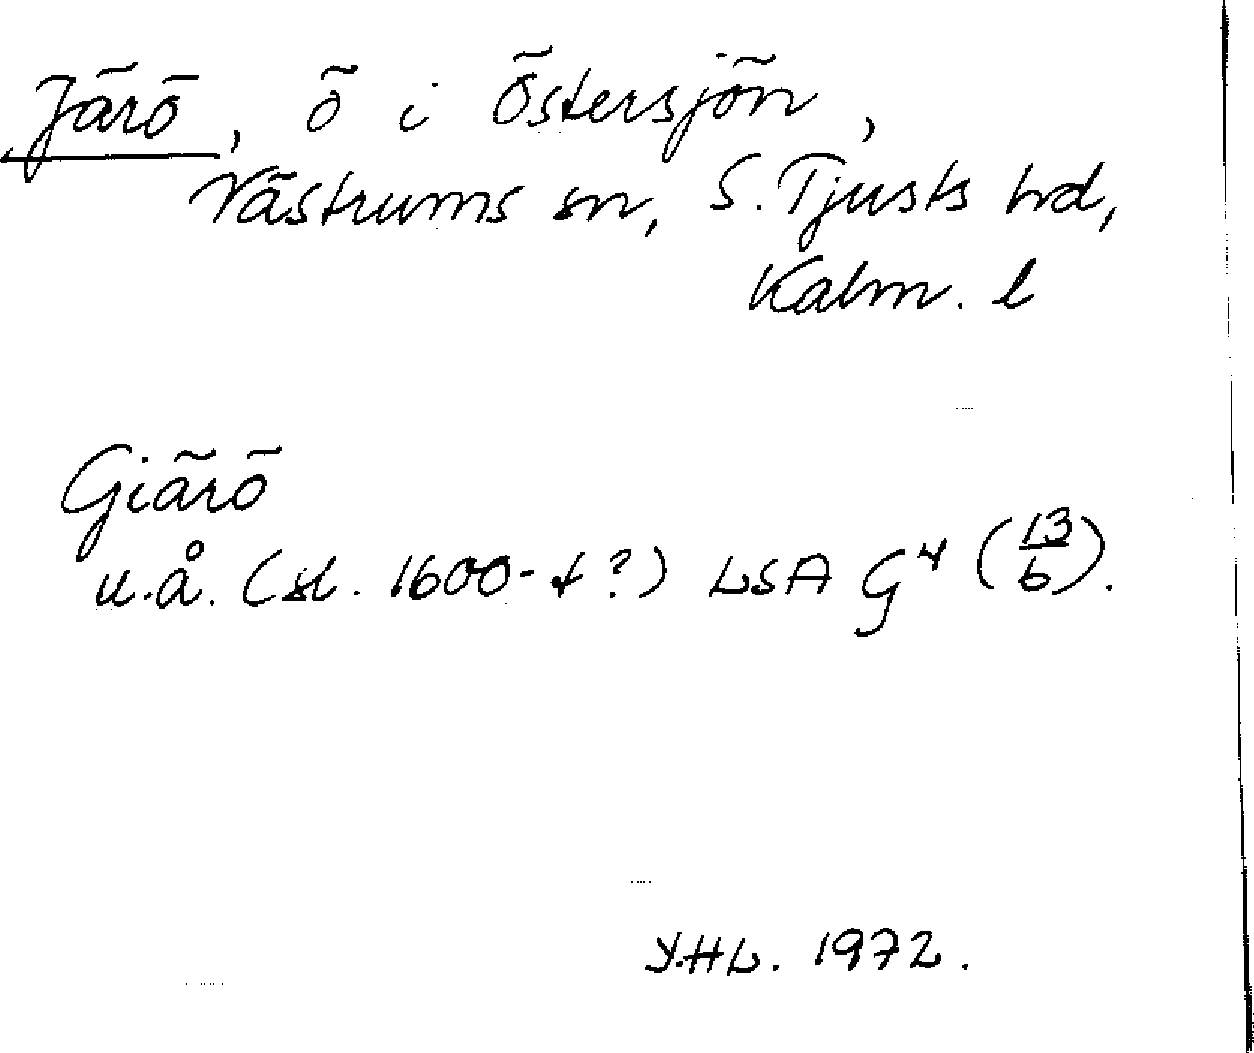 Järö, ö i Östersjön,
Västrums sn, S. Tjusts hd,
Kalm. l
Giärö
u.å. (sl. 1600-t?) LSA G⁴ (13/6).
Y.HL. 1972.